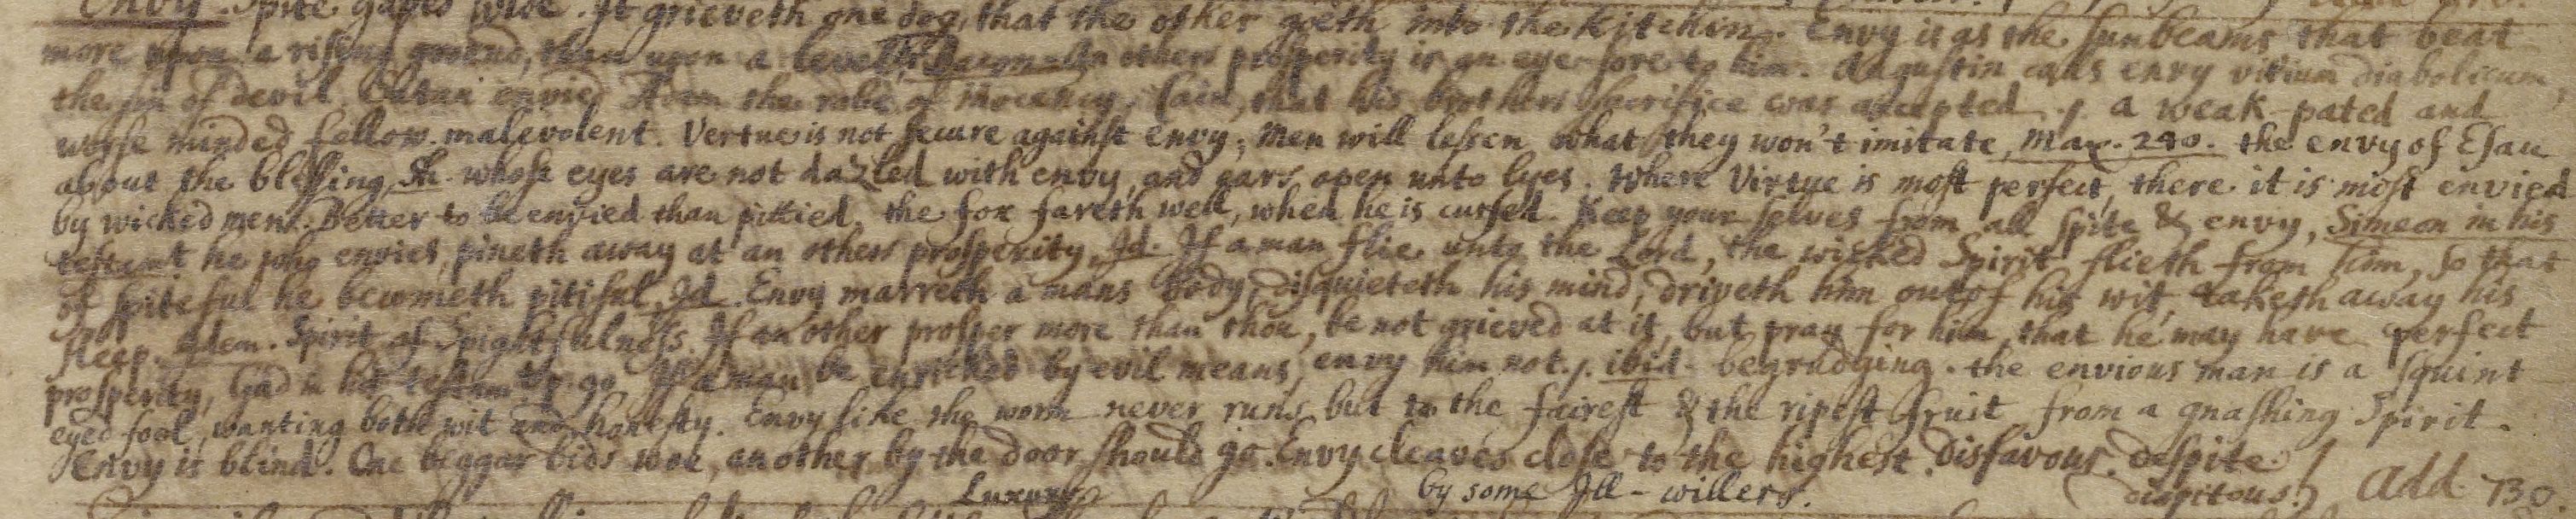 Envy. Spite gapes wide. It grieveth one dog, that the other goeth into the kitchin. Envy is as the sunbeams that beat
more upon a rising ground, than upon a levell, Bacon. An others prosperity is an eye-sore to him. Augustin calls envy vitium diabolicum,
the sin of devil. Satan envied Adam the robe of Inocency, Cain, that his brothers sacrifice was accepted. /. a weak-pated and
worse minded fellow. malevolent. Vertue is not secure against envy; Men will lessen what they won't imitate, Max. 240. the envy of Esau
about the blessing, Sh. whose eyes are not dazled with envy, and ears open unto lyes. Where Virtue is most perfect, there it is most envied
by wicked men. Better to be envied than pittied. the fox fareth well, when he is cursed. Keep your selves from all spite & envy, Simeon in his
testamt he who envies, pineth away at an others prosperity, Id. If a man flie unto the Lord, the wicked Spirit flieth from him, so that
of spiteful he becometh pitiful, Id. Envy marreth a mans body, disquieteth his mind, driveth him out of his wit, taketh away his
sleep. Idem. Spirit of Spightfulness. If an other prosper more than thou, be not grieved at it, but pray for him, that he may have perfect
prosperity, Gad in his testamt p. 90. If a man be enriched by evil means, envy him not. /. ibid. begrudging. the envious man is a squint
eyed fool, wanting both wit and honesty. Envy like the worm never runs but to the fairest & the ripest fruit from a gnashing Spirit.
Envy is blind. One beggar bids woe, an other by the door should go. Envy cleaves close to the highest. Disfavour. despite
Luxury by some Ill-willers. dispitous. Add 730.